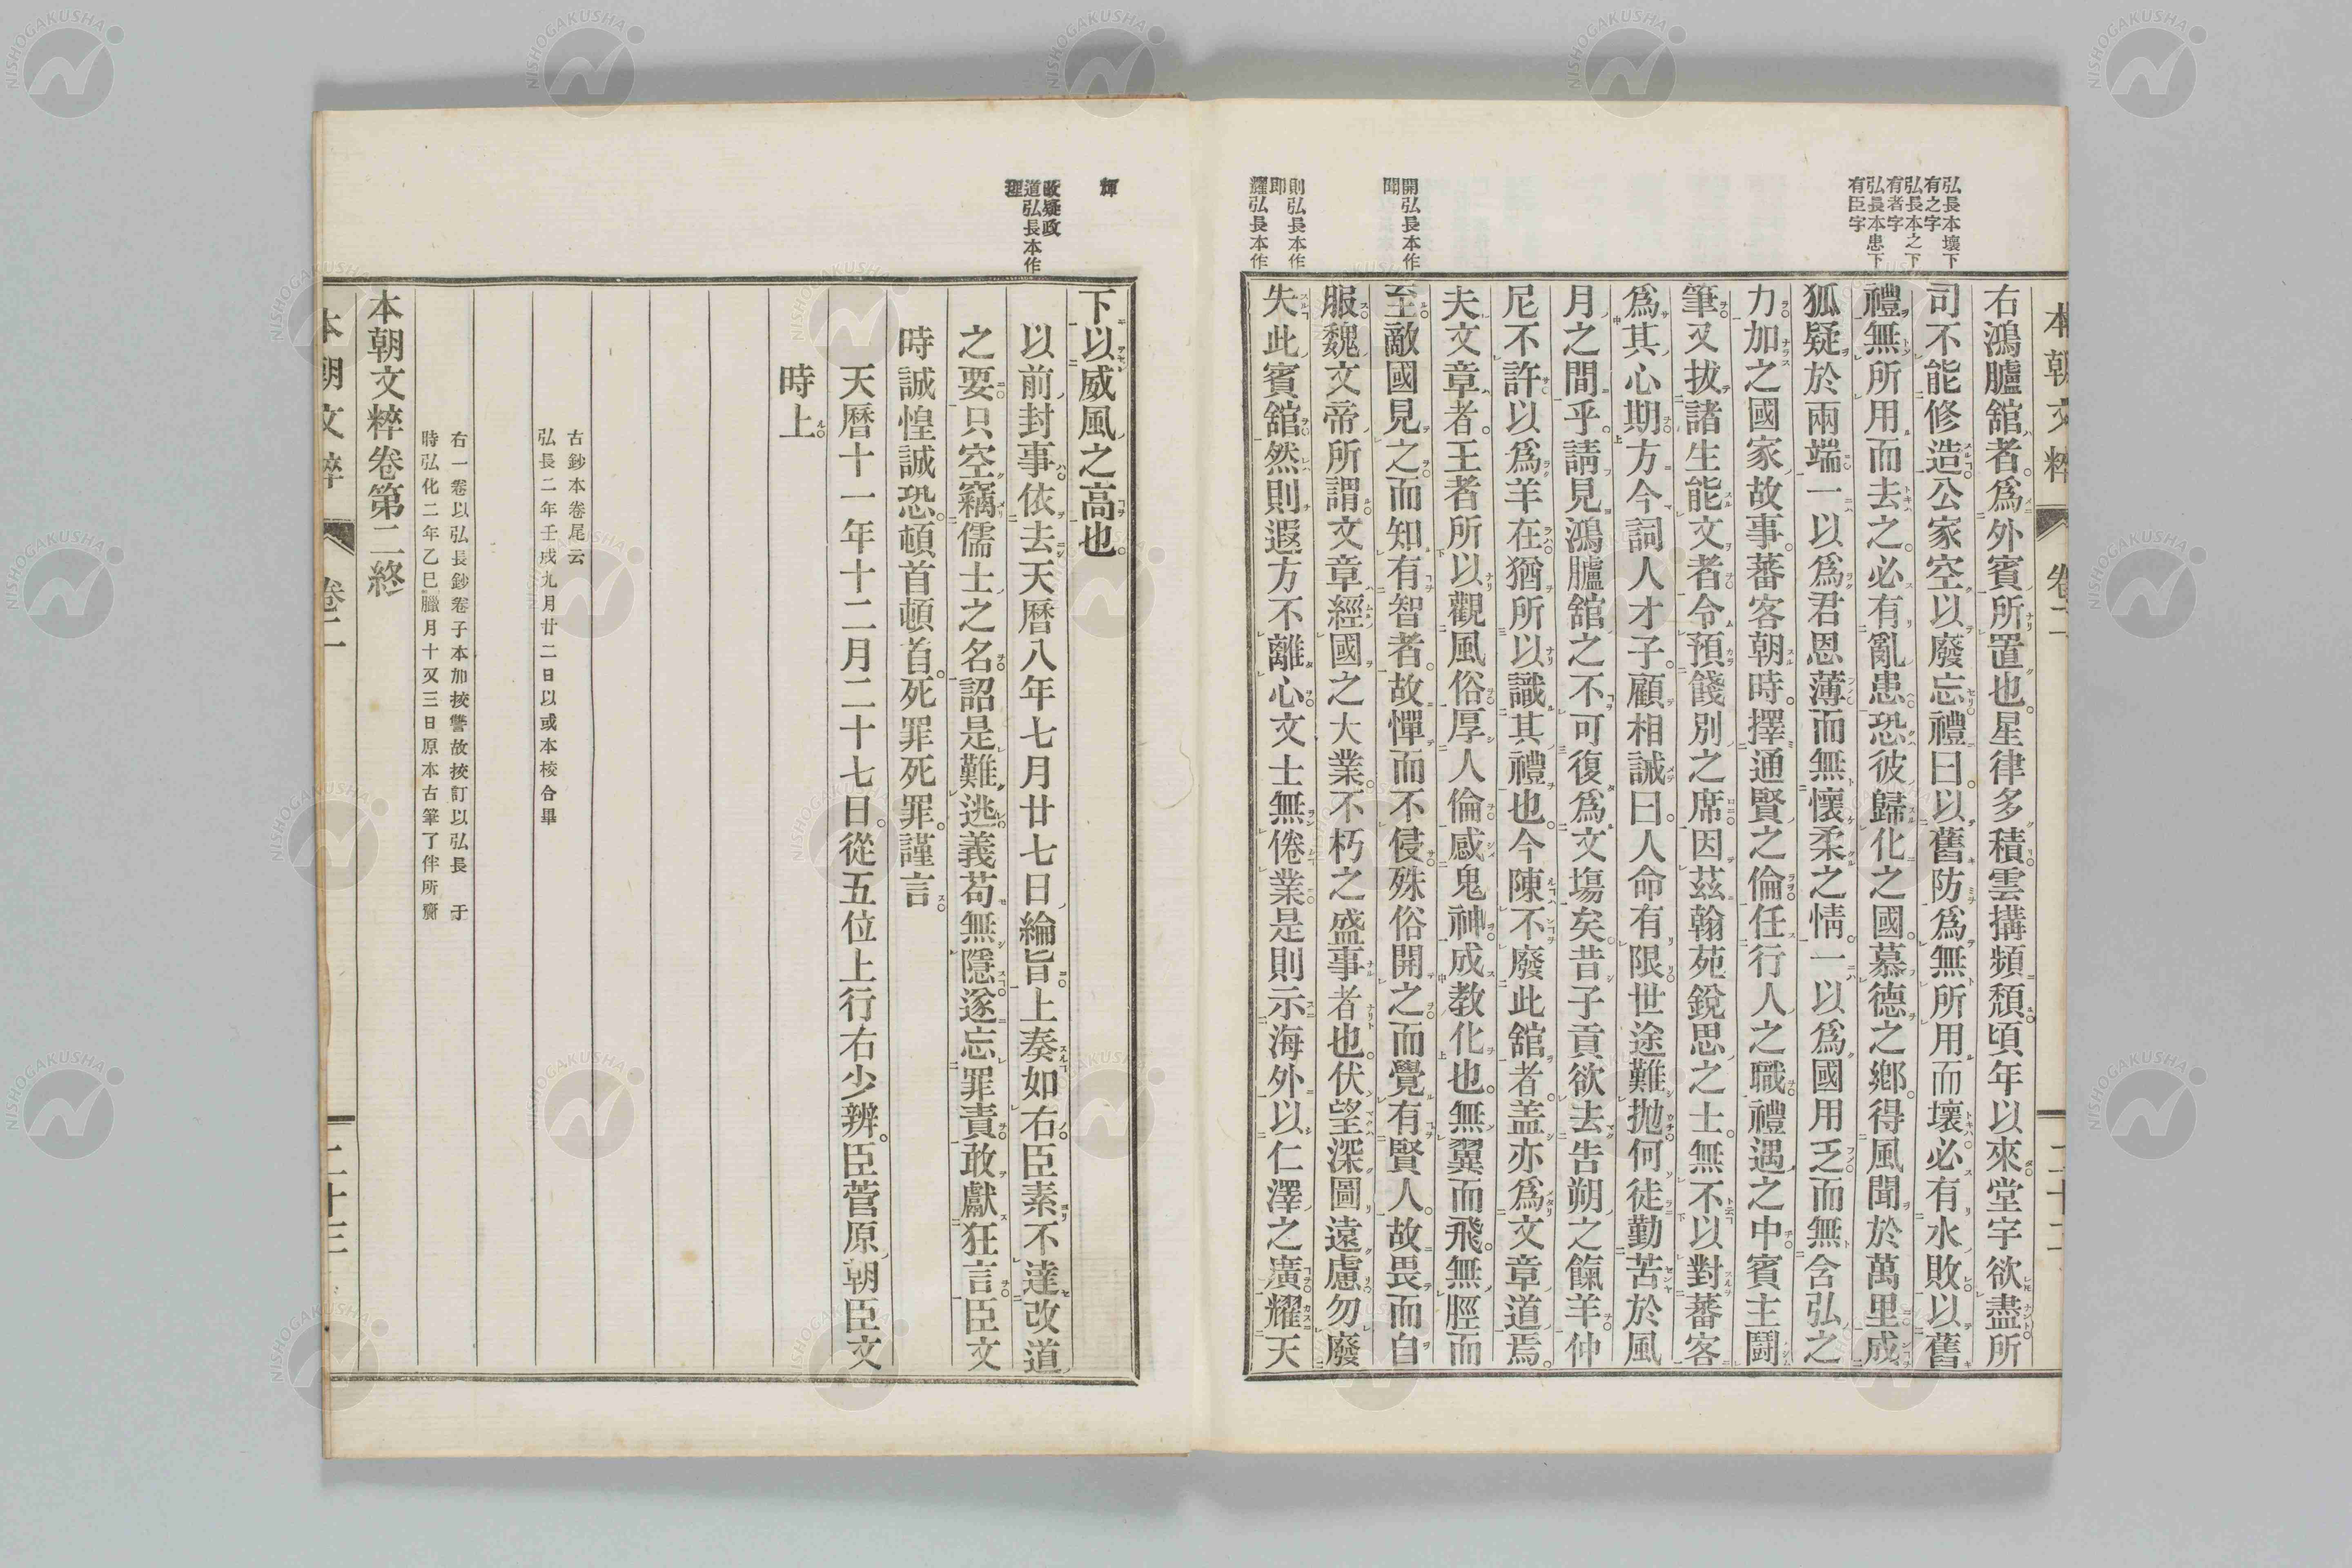 弘長本壞下
有之字
弘長本之下
有者字
弘長本患下
有臣字
開弘長本作
聞
則弘長本作
即
耀弘長本作
本朝文粹 卷二 二十二
右鴻臚舘者爲外賓所置也星律多積雲搆頻頽頃年以來堂宇欲盡所
司不能修造公家空以廢忘禮曰以舊防爲無所用而壞必有水敗以舊
禮無所用而去之必有亂患恐彼歸化之國慕德之鄕得風聞於萬里成
狐疑於兩端一以爲君恩薄而無懷柔之情一以爲國用乏而無含弘之
力加之國家故事蕃客朝時擇通賢之倫任行人之職禮遇之中賓主鬪
筆又拔諸生能文者令預餞別之席因茲翰苑銳思之士無不以對蕃客
爲其心期方今詞人才子顧相誡曰人命有限世途難拋何徒勤苦於風
月之間乎請見鴻臚舘之不可復爲文塲矣昔子貢欲去告朔之餼羊仲
尼不許以爲羊在猶所以識其禮也今陳不廢此舘者盖亦爲文章道焉
夫文章者王者所以觀風俗厚人倫感鬼神成教化也無翼而飛無脛而
至敵國見之而知有智者故憚而不侵殊俗開之而覺有賢人故畏而自
服魏文帝所謂文章經國之大業不朽之盛事者也伏望深圖遠慮勿廢
失此賓舘然則遐方不離心文士無倦業是則示海外以仁澤之廣耀天
輝
改疑政
道弘長本作
理
下以威風之高也
以前封事依去天曆八年七月廿七日綸旨上奏如右臣素不達改道
之要只空竊儒士之名詔是難逃義苟無隱遂忘罪責敢獻狂言臣文
時誠惶誠恐頓首頓首死罪死罪謹言
天曆十一年十二月二十七日從五位上行右少辨臣菅原朝臣文
時上
古鈔本卷尾云
弘長二年壬戌九月廿二日以或本校合畢
右一卷以弘長鈔卷子本加挍讐故挍訂以弘長 于
時弘化二年乙巳臘月十又三日原本古筆了伴所齎
本朝文粹卷第二終
本朝文粹 卷二 二十三